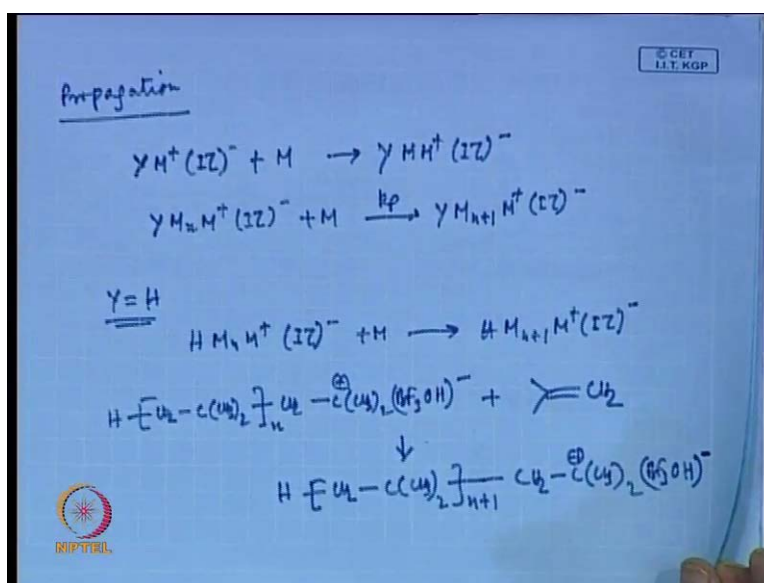 © CET
I.I.T. KGP
Propagation
YM⁺(IZ)⁻ + M → YMM⁺(IZ)⁻
YMₙM⁺(IZ)⁻ + M →kp YMₙ₊₁M⁺(IZ)⁻
Y = H
HMₙM⁺(IZ)⁻ + M → HMₙ₊₁M⁺(IZ)⁻
H-[CH₂-C(CH₃)₂]ₙCH₂-C⊕(CH₃)₂(BF₃OH)⁻ + >=CH₂
↓
H-[CH₂-C(CH₃)₂]ₙ₊₁-CH₂-C⊕(CH₃)₂(BF₃OH)⁻
NPTEL